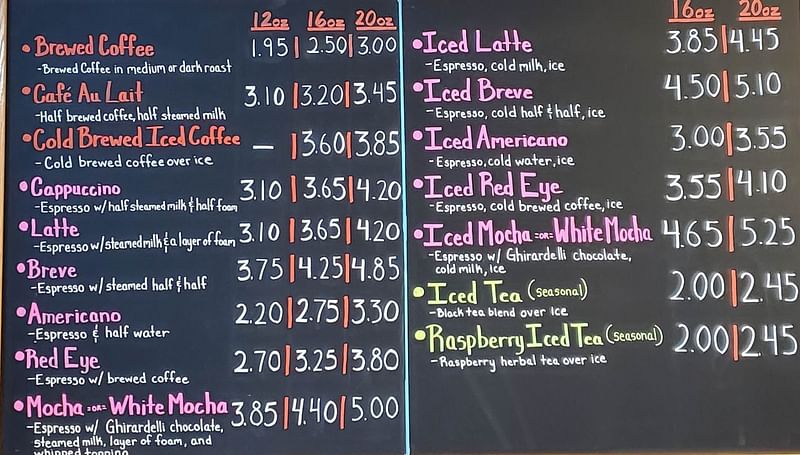 12oz 16oz 20oz
• Brewed Coffee 1.95 | 2.50 | 3.00
-Brewed Coffee in medium or dark roast
• Café Au Lait 3.10 | 3.20 | 3.45
-Half brewed coffee, half steamed milk
• Cold Brewed Iced Coffee — | 3.60 | 3.85
- Cold brewed coffee over ice
• Cappuccino 3.10 | 3.65 | 4.20
-Espresso w/ half steamed milk & half foam
• Latte 3.10 | 3.65 | 4.20
-Espresso w/ steamed milk & a layer of foam
• Breve 3.75 | 4.25 | 4.85
-Espresso w/ steamed half & half
• Americano 2.20 | 2.75 | 3.30
-Espresso & half water
• Red Eye 2.70 | 3.25 | 3.80
-Espresso w/ brewed coffee
• Mocha -OR- White Mocha 3.85 | 4.40 | 5.00
-Espresso w/ Ghirardelli chocolate,
steamed milk, layer of foam, and
whipped topping
16oz 20oz
• Iced Latte 3.85 | 4.45
-Espresso, cold milk, ice
• Iced Breve 4.50 | 5.10
-Espresso, cold half & half, ice
• Iced Americano 3.00 | 3.55
-Espresso, cold water, ice
• Iced Red Eye 3.55 | 4.10
-Espresso, cold brewed coffee, ice
• Iced Mocha -OR- White Mocha 4.65 | 5.25
-Espresso w/ Ghirardelli chocolate,
cold milk, ice
• Iced Tea (seasonal) 2.00 | 2.45
-Black tea blend over ice
• Raspberry Iced Tea (seasonal) 2.00 | 2.45
-Raspberry herbal tea over ice